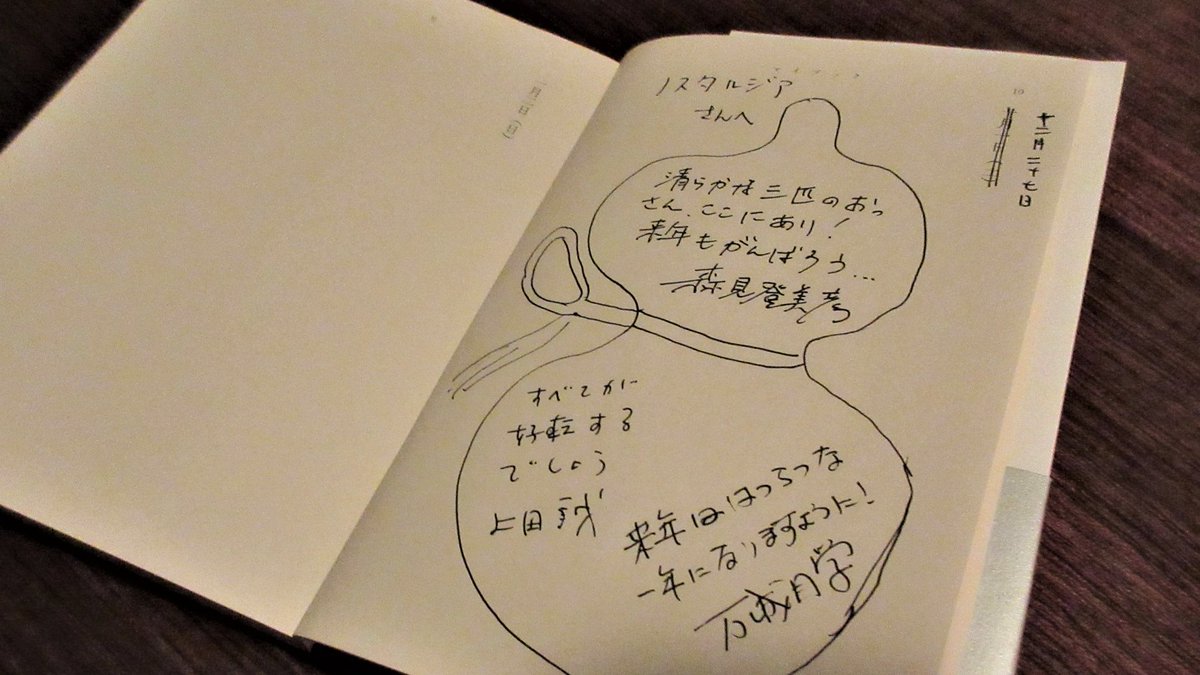 十二月二十七日
10
ノスタルジア
さんへ
清らかな三匹のおっ
さん、ここにあり!
来年もがんばろう…
森見登美彦
すべてが
好転する
でしょう
上田誠
来年ははつらつな
一年になりますように!
万城目学